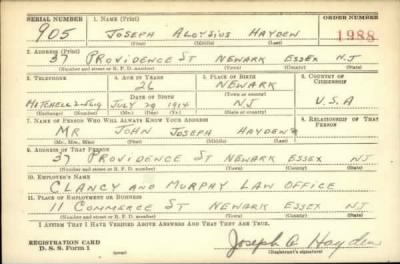 SERIAL NUMBER 1. NAME (Print) ORDER NUMBER
905 JOSEPH ALOYSIUS HAYDEN 1988
(First) (Middle) (Last)
2. ADDRESS (Print)
37 PROVIDENCE ST NEWARK ESSEX NJ
(Number and street or R. F. D. number) (Town) (County) (State)
3. TELEPHONE 4. AGE IN YEARS 5. PLACE OF BIRTH 6. COUNTRY OF CITIZENSHIP
26 NEWARK
DATE OF BIRTH (Town or county)
MITCHELL JULY 29 1914 NJ U.S.A
(Exchange) (Number) (Mo.) (Day) (Yr.) (State or country)
7. NAME OF PERSON WHO WILL ALWAYS KNOW YOUR ADDRESS 8. RELATIONSHIP OF THAT PERSON
MR JOHN JOSEPH HAYDEN
(Mr., Mrs., Miss) (First) (Middle) (Last)
9. ADDRESS OF THAT PERSON
37 PROVIDENCE ST NEWARK ESSEX NJ
(Number and street or R. F. D. number) (Town) (County) (State)
10. EMPLOYER'S NAME
CLANCY AND MURPAY LAW OFFICE
11. PLACE OF EMPLOYMENT OR BUSINESS
11 COMMERCE ST NEWARK ESSEX NJ
(Number and street or R. F. D. number) (Town) (County) (State)
I AFFIRM THAT I HAVE VERIFIED ABOVE ANSWERS AND THAT THEY ARE TRUE.
REGISTRATION CARD
D. S. S. Form 1 Joseph A Hayden
(Registrant's signature)